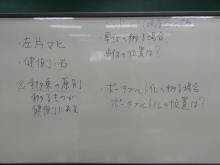 ・左片マヒ
・健側は右
※移乗の原則
移るものが
健側にある
・車イスへ移る場合
車イスの位置は?
・ポータブルトイレへ移る場合
ポータブルトイレの位置は?